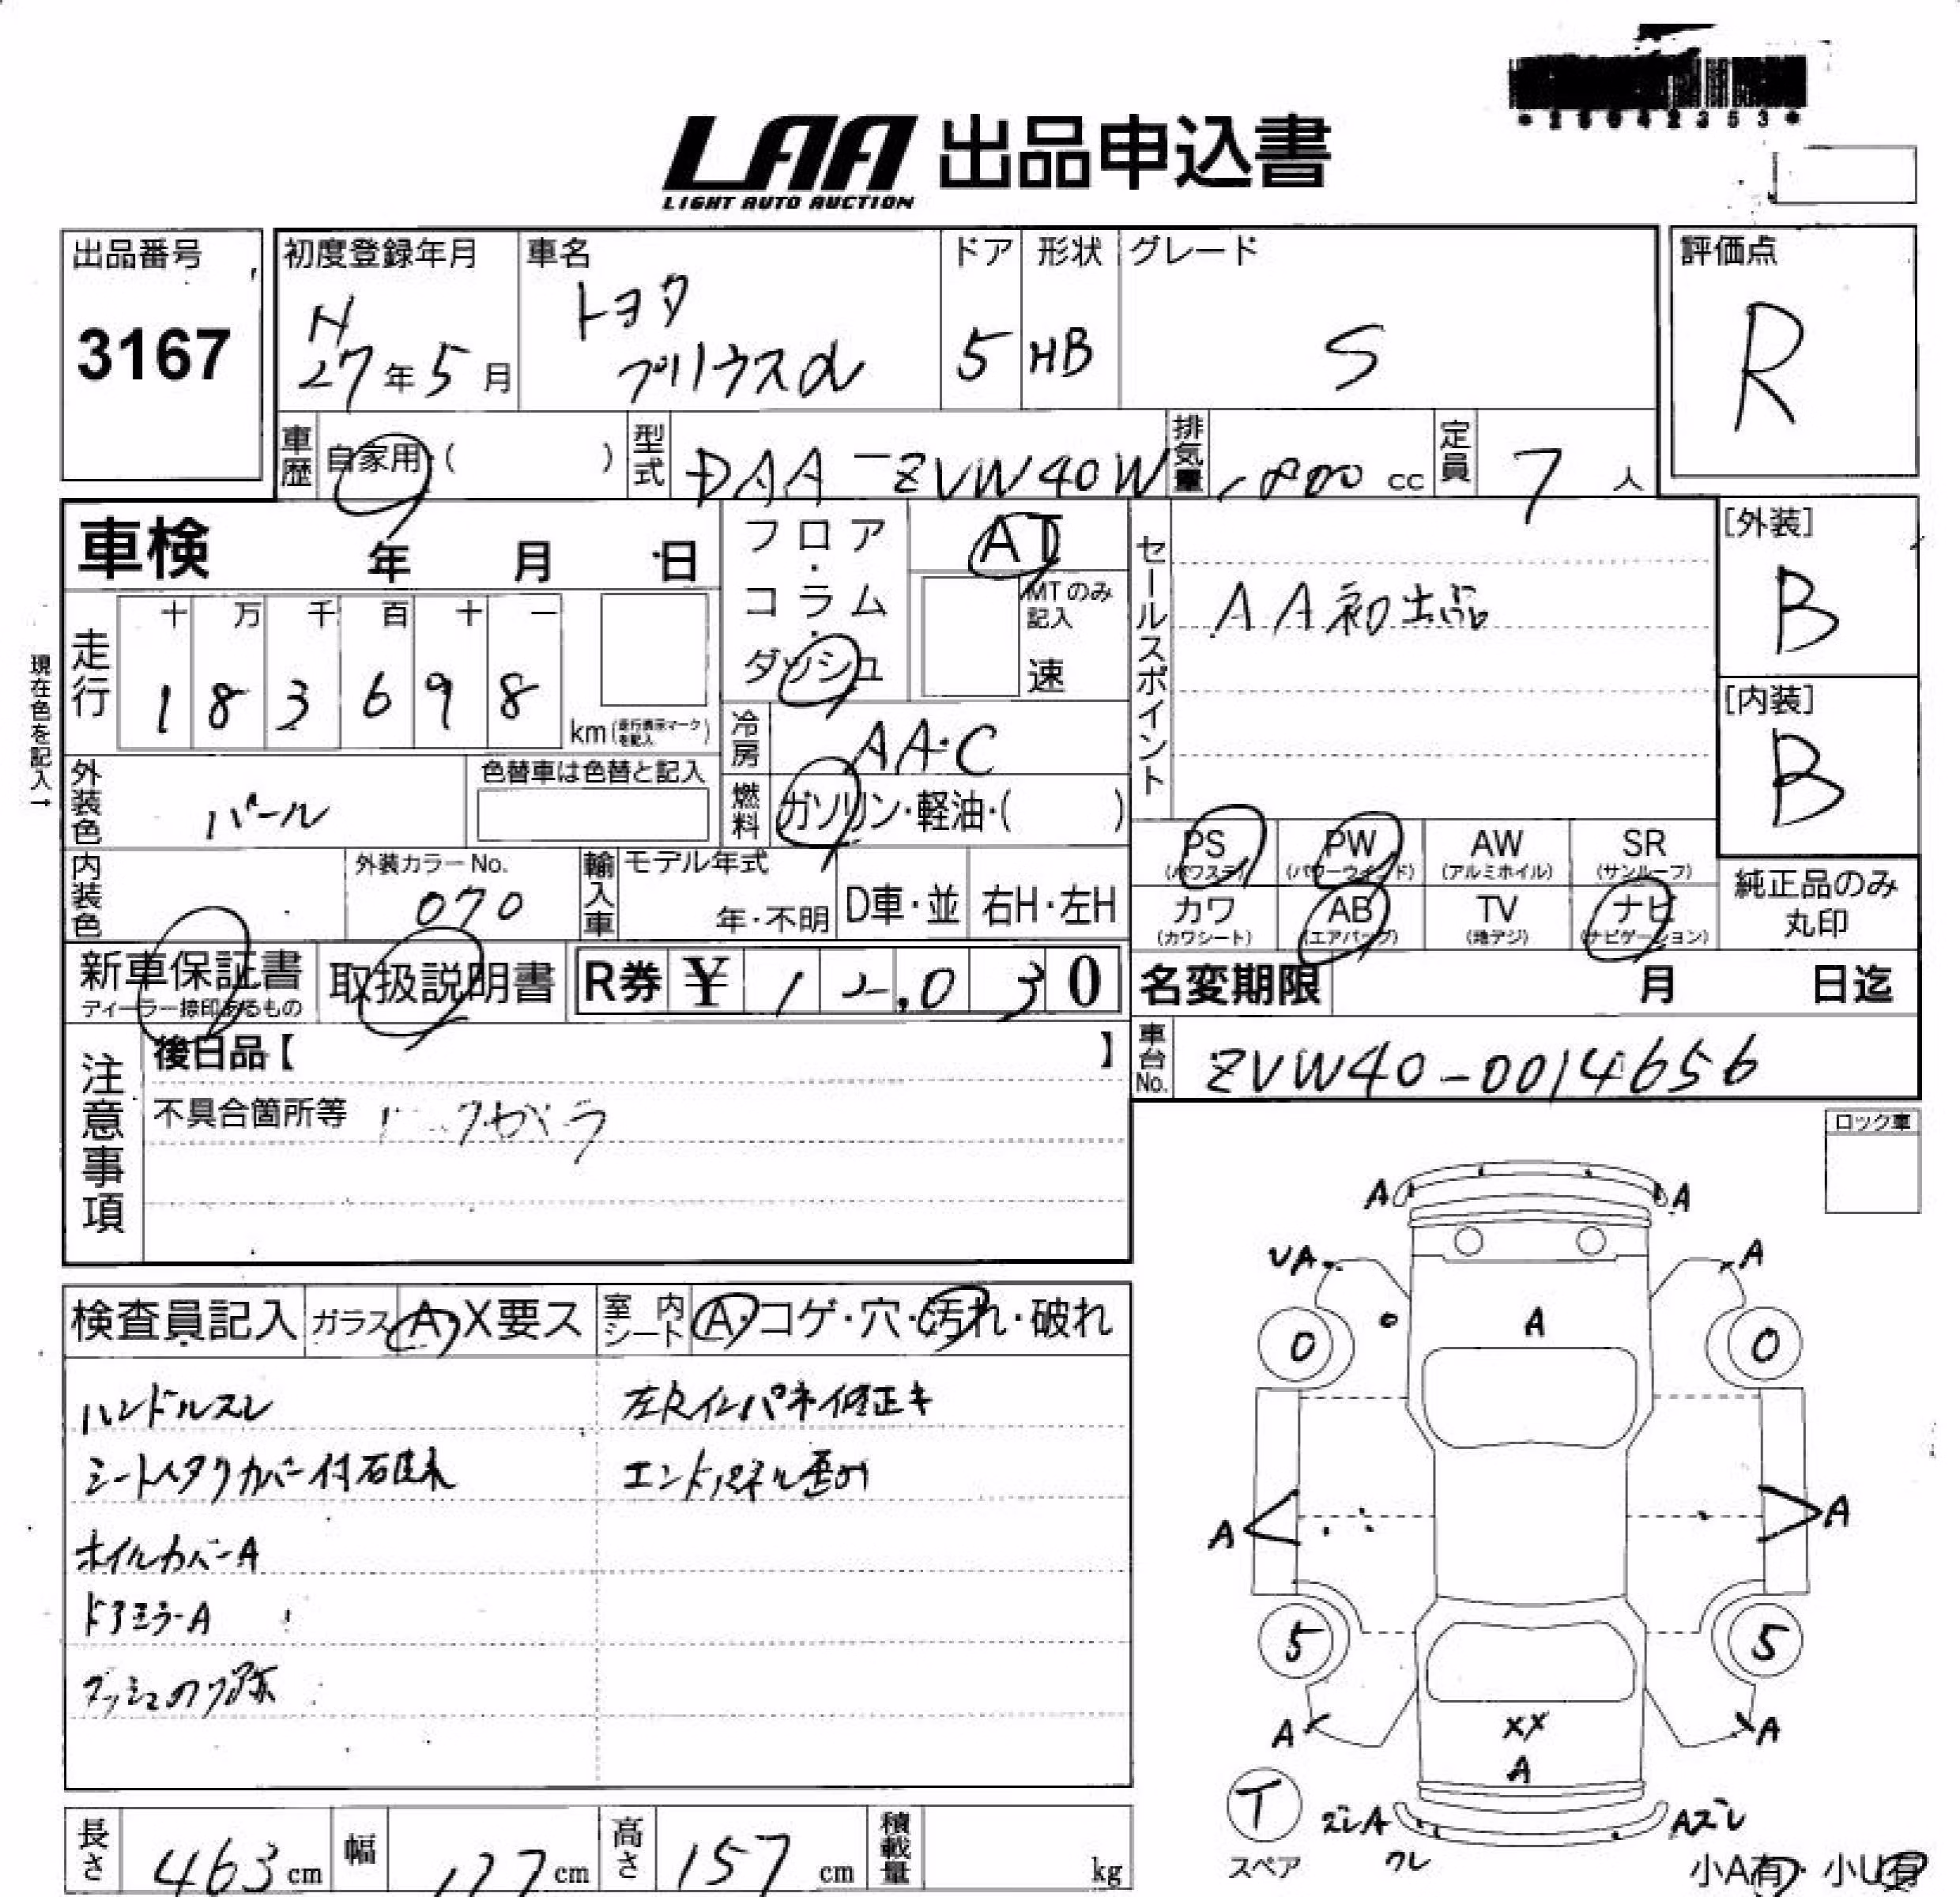 LAA 出品申込書
LIGHT AUTO AUCTION
出品番号
3167
初度登録年月
H
27年5月
車名
トヨタ
プリウスα
ドア
5
形状
HB
グレード
S
評価点
R
車歴
自家用・( )
型式
DAA-ZVW40W
排気量
1800cc
定員
7人
車検 年 月 日
フロア・コラム・ダッシュ
AT
MTのみ記入
速
セールスポイント
AA初出品
[外装]
B
[内装]
B
現在色を記入→
走行
十 万 千 百 十 一
1 8 3 6 9 8
km(走行表示マークを記入)
冷房
AA・C
外装色
パール
色替車は色替と記入
燃料
ガソリン・軽油・( )
内装色
外装カラーNo.
070
輸入車
モデル年式
年・不明
D車・並
右H・左H
PS
(パワステ)
PW
(パワーウィンド)
AW
(アルミホイル)
SR
(サンルーフ)
カワ
(カワシート)
AB
(エアバッグ)
TV
(地デジ)
ナビ
(ナビゲーション)
純正品のみ
丸印
新車保証書
ディーラー捺印あるもの
取扱説明書
R券 ¥ 12,030
名変期限 月 日迄
車台No.
ZVW40-0014656
注意事項
後日品【 】
不具合箇所等
ロック車
検査員記入
ガラス
A・X要ス
室内シート
A・コゲ・穴・汚れ・破れ
ハンドルスレ
ホイルカバーA
ドアミラーA
エンドパネル歪み
A A
UA A
A
0 0
A A
5 5
A XX A
A
T
スペア
ズレA Aズレ
ワレ
小A有・小U有
長さ
463cm
幅
177cm
高さ
157cm
積載量
kg